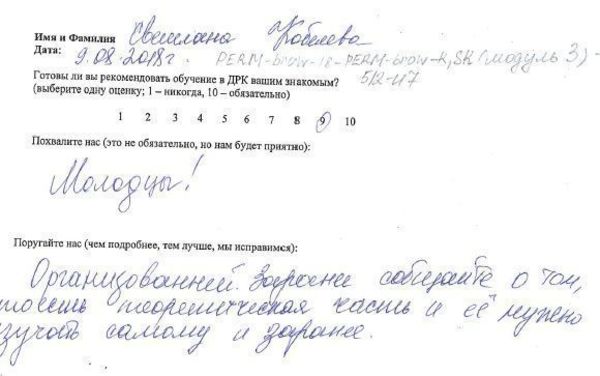 Имя и Фамилия Светлана Кобелева
Дата: 9.08.2018г. PERM-brow-18-PERM-brow-R,SR (модуль 3) -
Готовы ли вы рекомендовать обучение в ДРК вашим знакомым? 512-417
(выберите одну оценку; 1 – никогда, 10 – обязательно)
1 2 3 4 5 6 7 8 9 10
Похвалите нас (это не обязательно, но нам будет приятно):
Молодцы!
Поругайте нас (чем подробнее, тем лучше, мы исправимся):
Организованней. Заранее о том,
то есть теоретическая часть и её нужно
зучать самому и заранее.